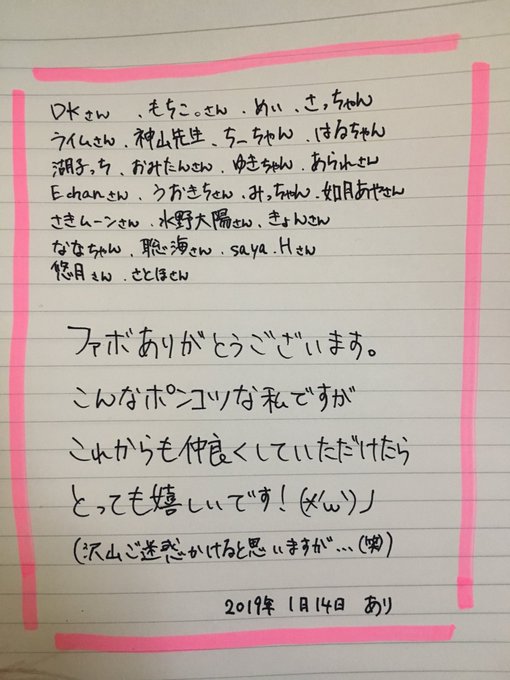 DKさん、もちこ。さん、めぃ、さっちゃん
ライムさん、神山先生、ちーちゃん、はるちゃん
湖子っち、おみたんさん、ゆきちゃん、あられさん
Echanさん、うおきちさん、みっちゃん、如月あやさん
さきムーンさん、水野大陽さん、きょんさん
ななちゃん、聡海さん、saya.Hさん
悠月さん、さとほさん
ファボありがとうございます。
こんなポンコツな私ですが
これからも仲良くしていただけたら
とっても嬉しいです!(*'ω')ノ
(沢山ご迷惑かけると思いますが…(笑))
2019年 1月14日 あり